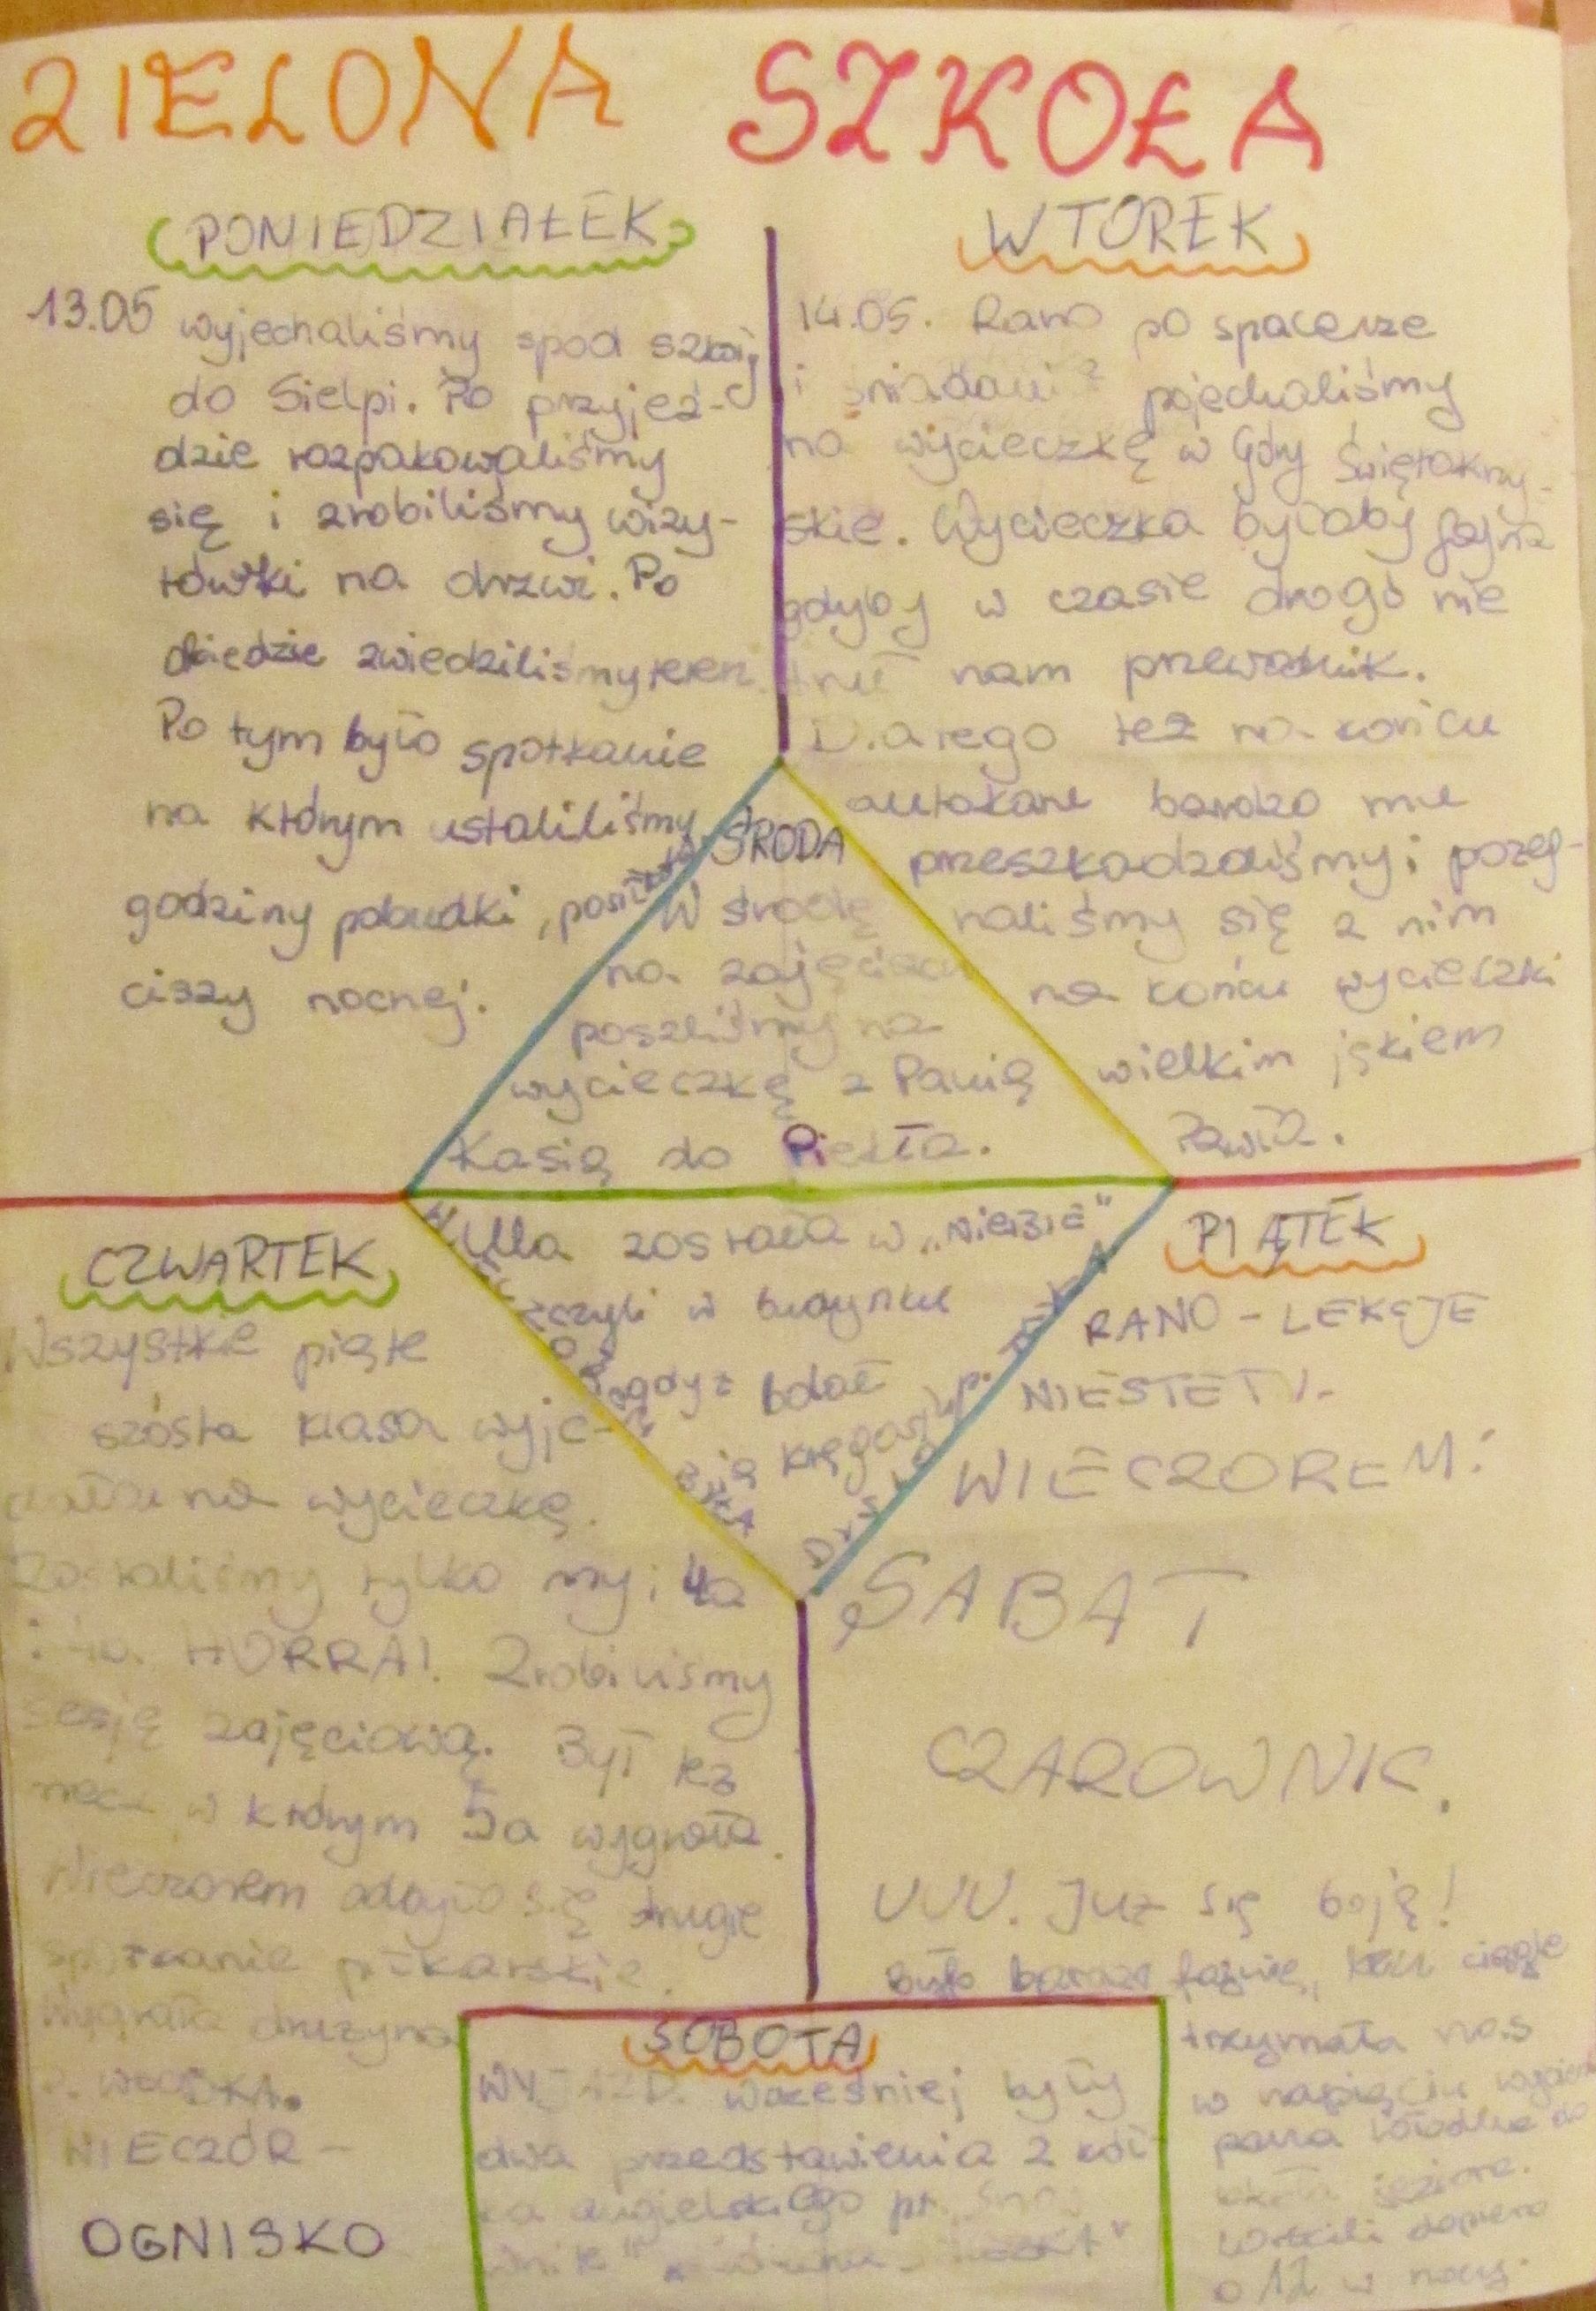 ZIELONA SZKOŁA
PONIEDZIAŁEK
13.05 wyjechaliśmy spod szkoły
do Sielpi. Po przyjeź-
dzie rozpakowaliśmy
się i zrobiliśmy wizy-
tówki na drzwi. Po
obiedzie zwiedziliśmy teren.
Po tym było spotkanie
na którym ustaliliśmy
godziny pobudki, posiłków
ciszy nocnej.
WTOREK
14.05. Rano po spacerze
i śniadaniu pojechaliśmy
na wycieczkę w Góry Świętokrzy-
skie. Wycieczka byłaby fajna
gdyby w czasie drogi nie
nam przewodnik.
Dlatego też na końcu
autokaru bardzo mu
przeszkadzaliśmy i pożeg-
naliśmy się z nim
na końcu wycieczki
wielkim jękiem
ŚRODA
W środę
na zajęcia
poszliśmy na
wycieczkę z Panią
Kasią do Piekła.
Ulla została w „Niebie"
czyli w budynku
gdyż bolał
ją kręgosłup.
WIECZOREM BYŁA
DYSKOTEKA
CZWARTEK
Wszystkie piąte
szósta klasa wyje-
chała na wycieczkę.
Zostaliśmy tylko my i 4a
HURRA! Zrobiliśmy
sesję zajęciową. Był też
mecz w którym 5a wygrała.
Wieczorem odbyło się drugie
spotkanie piłkarskie.
Wygrała drużyna
p. WŁODKA.
WIECZÓR -
OGNISKO
PIĄTEK
RANO - LEKCJE
NIESTETY.
WIECZOREM:
SABAT
CZAROWNIC.
UUU. Już się boję!
Było bardzo fajnie, ciągle
trzymała nas
w napięciu
pana Włodka do
jeziora.
dopiero
o 12 w nocy.
SOBOTA
WYJAZD. Wcześniej były
dwa przedstawienia z kół-
ka angielskiego pt.